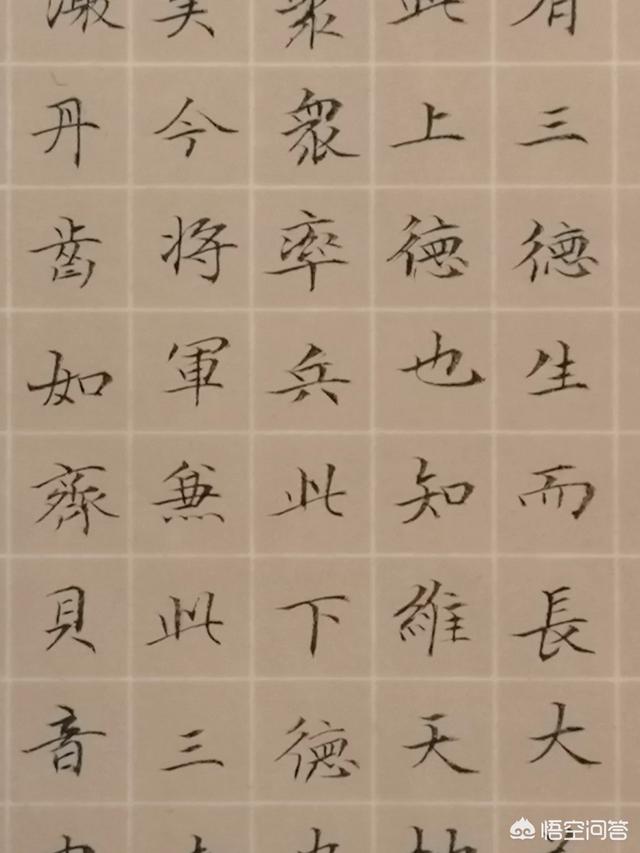 有三德生而長大
此上德也知維天
聚眾率兵此下德
矣今將軍兼此三
激丹齒如齊貝音
悟空问答